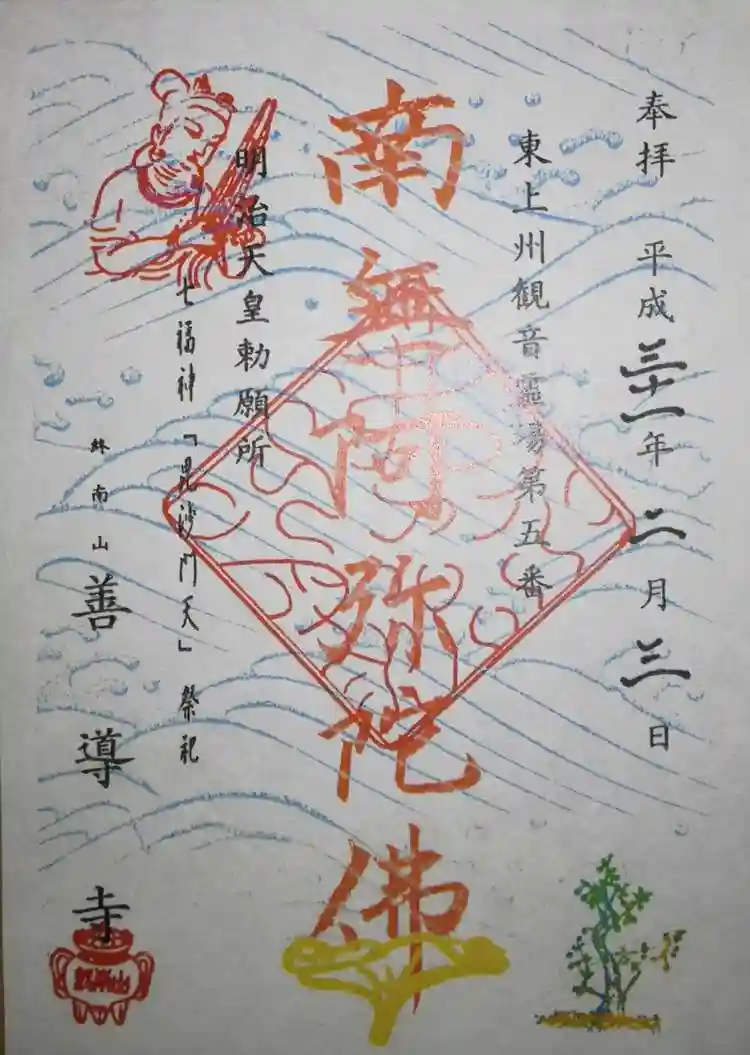 奉拝 平成三十一年二月三日
東上州観音霊場第五番
南無阿弥陀佛
明治天皇勅願所
七福神「毘沙門天」祭祀
終南山 善導寺